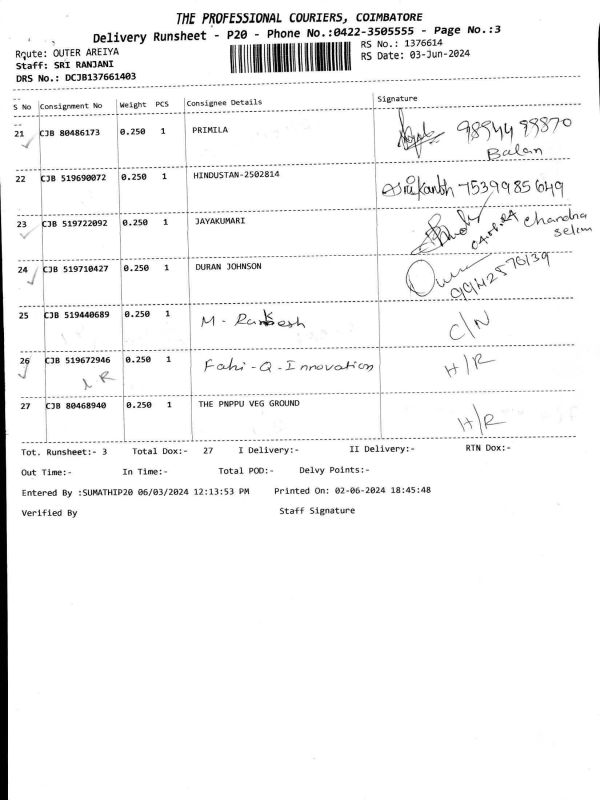 THE PROFESSIONAL COURIERS, COIMBATORE
Delivery Runsheet - P20 - Phone No.:0422-3505555 - Page No.:3
Route: OUTER AREIYA
RS No.: 1376614
Staff: SRI RANJANI
RS Date: 03-Jun-2024
DRS No.: DCJB137661403
S No Consignment No Weight PCS Consignee Details Signature
21 CJB 80486173 0.250 1 PRIMILA 9894499870
Balan
22 CJB 519690072 0.250 1 HINDUSTAN-2502814 Srikanth 7539985649
23 CJB 519722092 0.250 1 JAYAKUMARI Chandra
selim
24 CJB 519710427 0.250 1 DURAN JOHNSON
25 CJB 519440689 0.250 1 M - Rankesh C/N
26 CJB 519672946 0.250 1 Fahi-Q-Innovation H/R
27 CJB 80468940 0.250 1 THE PNPPU VEG GROUND H/R
Tot. Runsheet:- 3 Total Dox:- 27 I Delivery:- II Delivery:- RTN Dox:-
Out Time:- In Time:- Total POD:- Delvy Points:-
Entered By :SUMATHIP20 06/03/2024 12:13:53 PM Printed On: 02-06-2024 18:45:48
Verified By Staff Signature